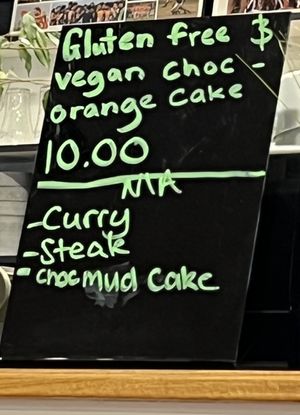 Gluten free $
vegan choc -
orange cake
10.00
N/A
-Curry
-Steak
-choc mud cake